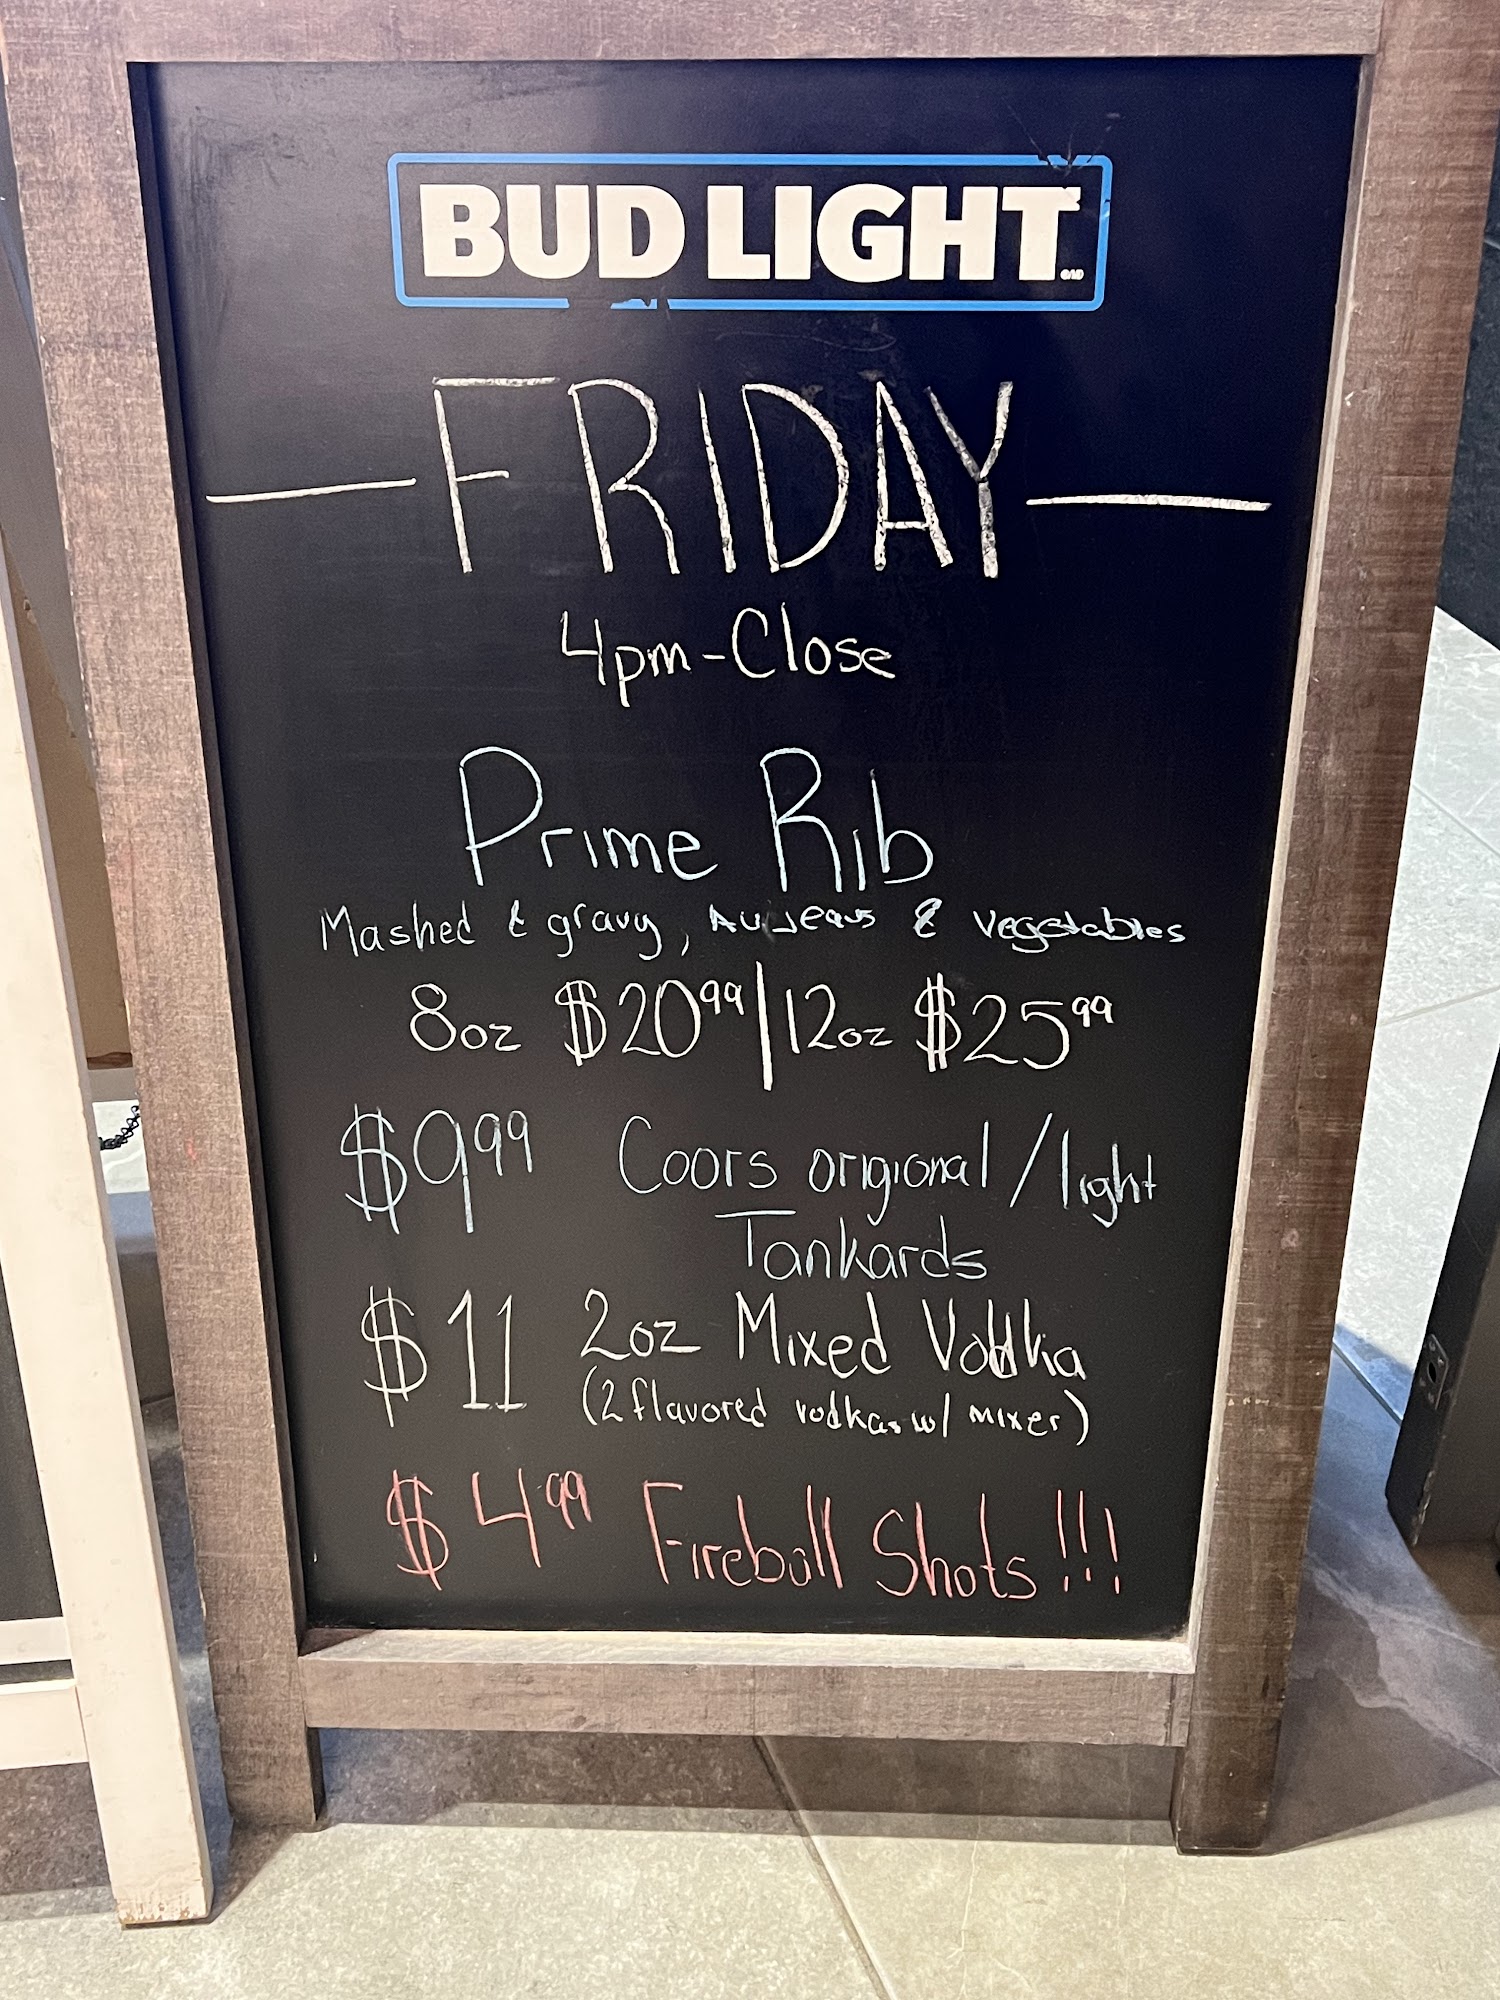 BUD LIGHT
FRIDAY
4pm-Close
Prime Rib
Mashed & gravy, & vegetables
8oz $20⁹⁹ | 12oz $25⁹⁹
$9⁹⁹ Coors origional / light
Tankards
$11 2oz Mixed Vodka
(2 flavored vodkas w/ mixer)
$4⁹⁹ Fireball Shots!!!